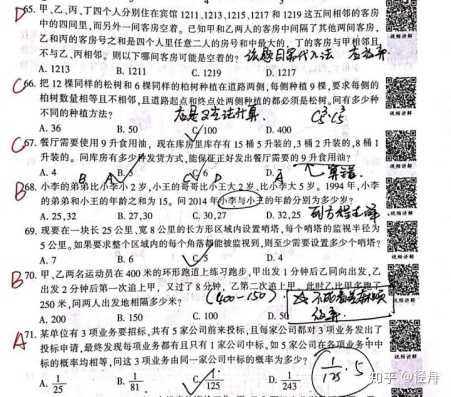 D 65. 甲、乙、丙、丁四个人分别住在宾馆 1211、1213、1215、1217 和 1219 这五间相邻的客房
中的四间里,而另外一间客房空着。已知甲和乙两人的客房中间隔了其他两间客房,
乙和丙的客房号之和是四个人里任意二人的房号和中最大的,丁的客房与甲相邻且
不与乙、丙相邻。则以下哪间客房可能是空着的?
A. 1213 B. 1211 C. 1219 D. 1217
C 66. 把 12 棵同样的松树和 6 棵同样的柏树种植在道路两侧,每侧种植 9 棵,要求每侧的
柏树数量相等且不相邻,且道路起点和终点处两侧种植的都必须是松树。问有多少种
不同的种植方法?
A. 36 B. 50 C. 100 D. 400
C 67. 餐厅需要使用 9 升食用油,现在库房里库存有 15 桶 5 升装的,3 桶 2 升装的,8 桶 1
升装的。问库房有多少种发货方式,能保证正好发出餐厅需要的 9 升食用油?
A. 4 B. 5 C. 6 D. 7
B 68. 小李的弟弟比小李小 2 岁,小王的哥哥比小王大 2 岁、比小李大 5 岁。1994 年,小李
的弟弟和小王的年龄之和为 15。问 2014 年小李与小王的年龄分别为多少岁?
A. 25,32 B. 27,30 C. 30,27 D. 32,25
69. 现要在一块长 25 公里、宽 8 公里的长方形区域内设置哨塔,每个哨塔的监视半径为
5 公里。如果要求整个区域内的每个角落都能被监视到,则至少需要设置多少个哨塔?
A. 7 B. 6 C. 5 D. 4
B 70. 甲、乙两名运动员在 400 米的环形跑道上练习跑步,甲出发 1 分钟后乙同向出发,乙
出发 2 分钟后第一次追上甲,又过了 8 分钟,乙第二次追上甲,此时乙比甲多跑了
250 米,问两人出发地相隔多少米?
(400-150)
A. 200 B. 150 C. 100 D. 50
A 71. 某单位有 3 项业务要招标,共有 5 家公司前来投标,且每家公司都对 3 项业务发出了
投标申请,最终发现每项业务都有且只有 1 家公司中标。如 5 家公司在各项业务中中
标的概率均相等,问这 3 项业务由同一家公司中标的概率为多少?
A. 1/25 B. 1/81 C. 1/125 D. 1/243
1/125 · 5